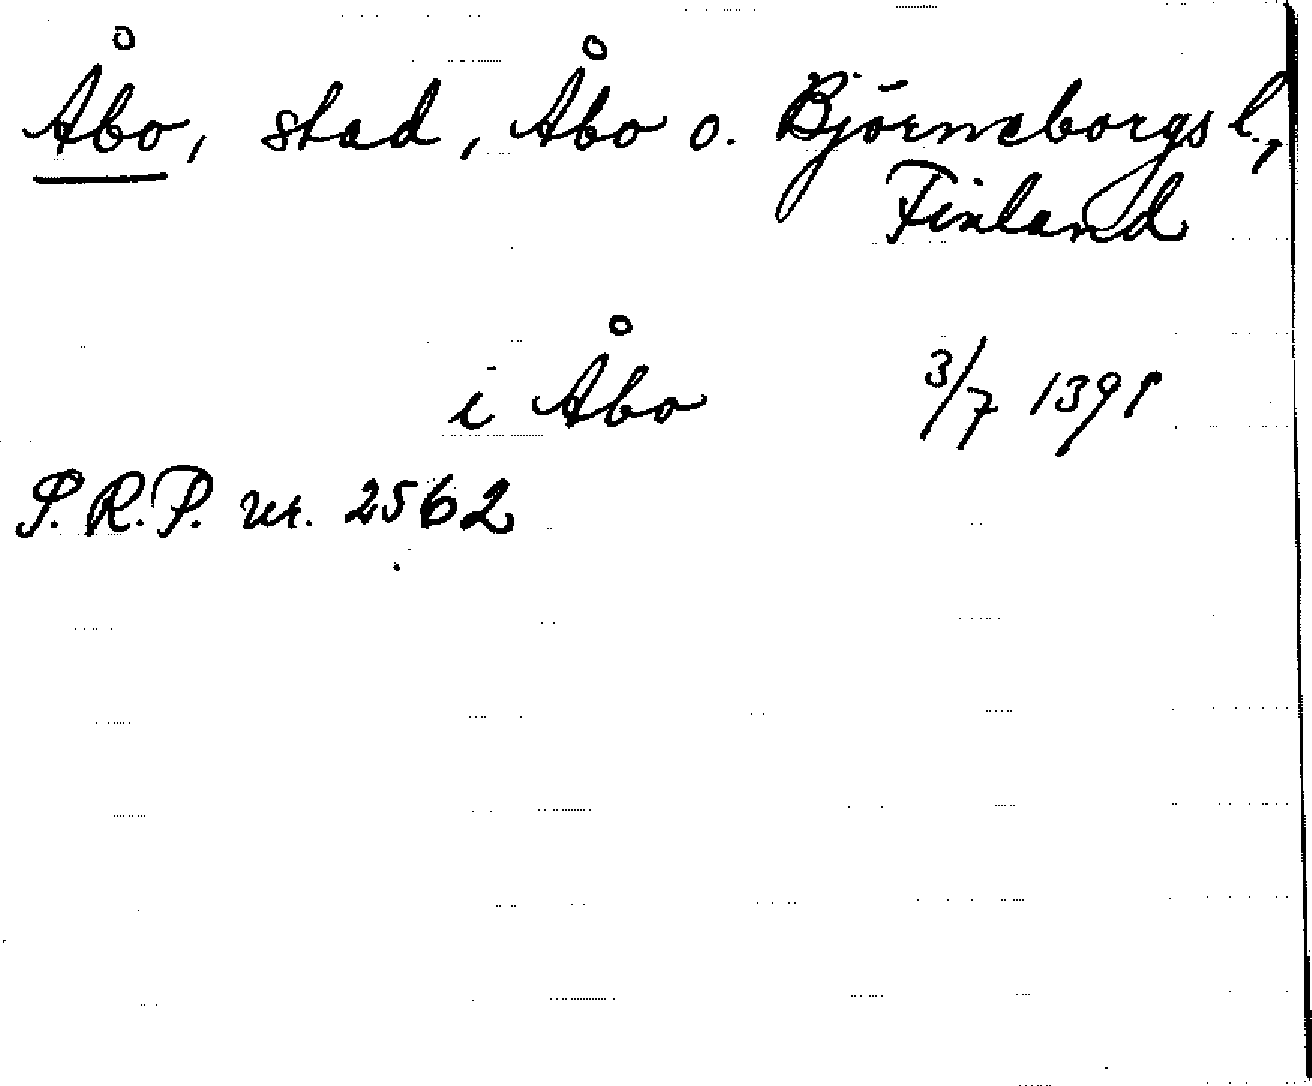 Åbo, stad, Åbo o. Björneborgs l.,
Finland
i Åbo 3/7 1391
S.R.P. nr. 2562